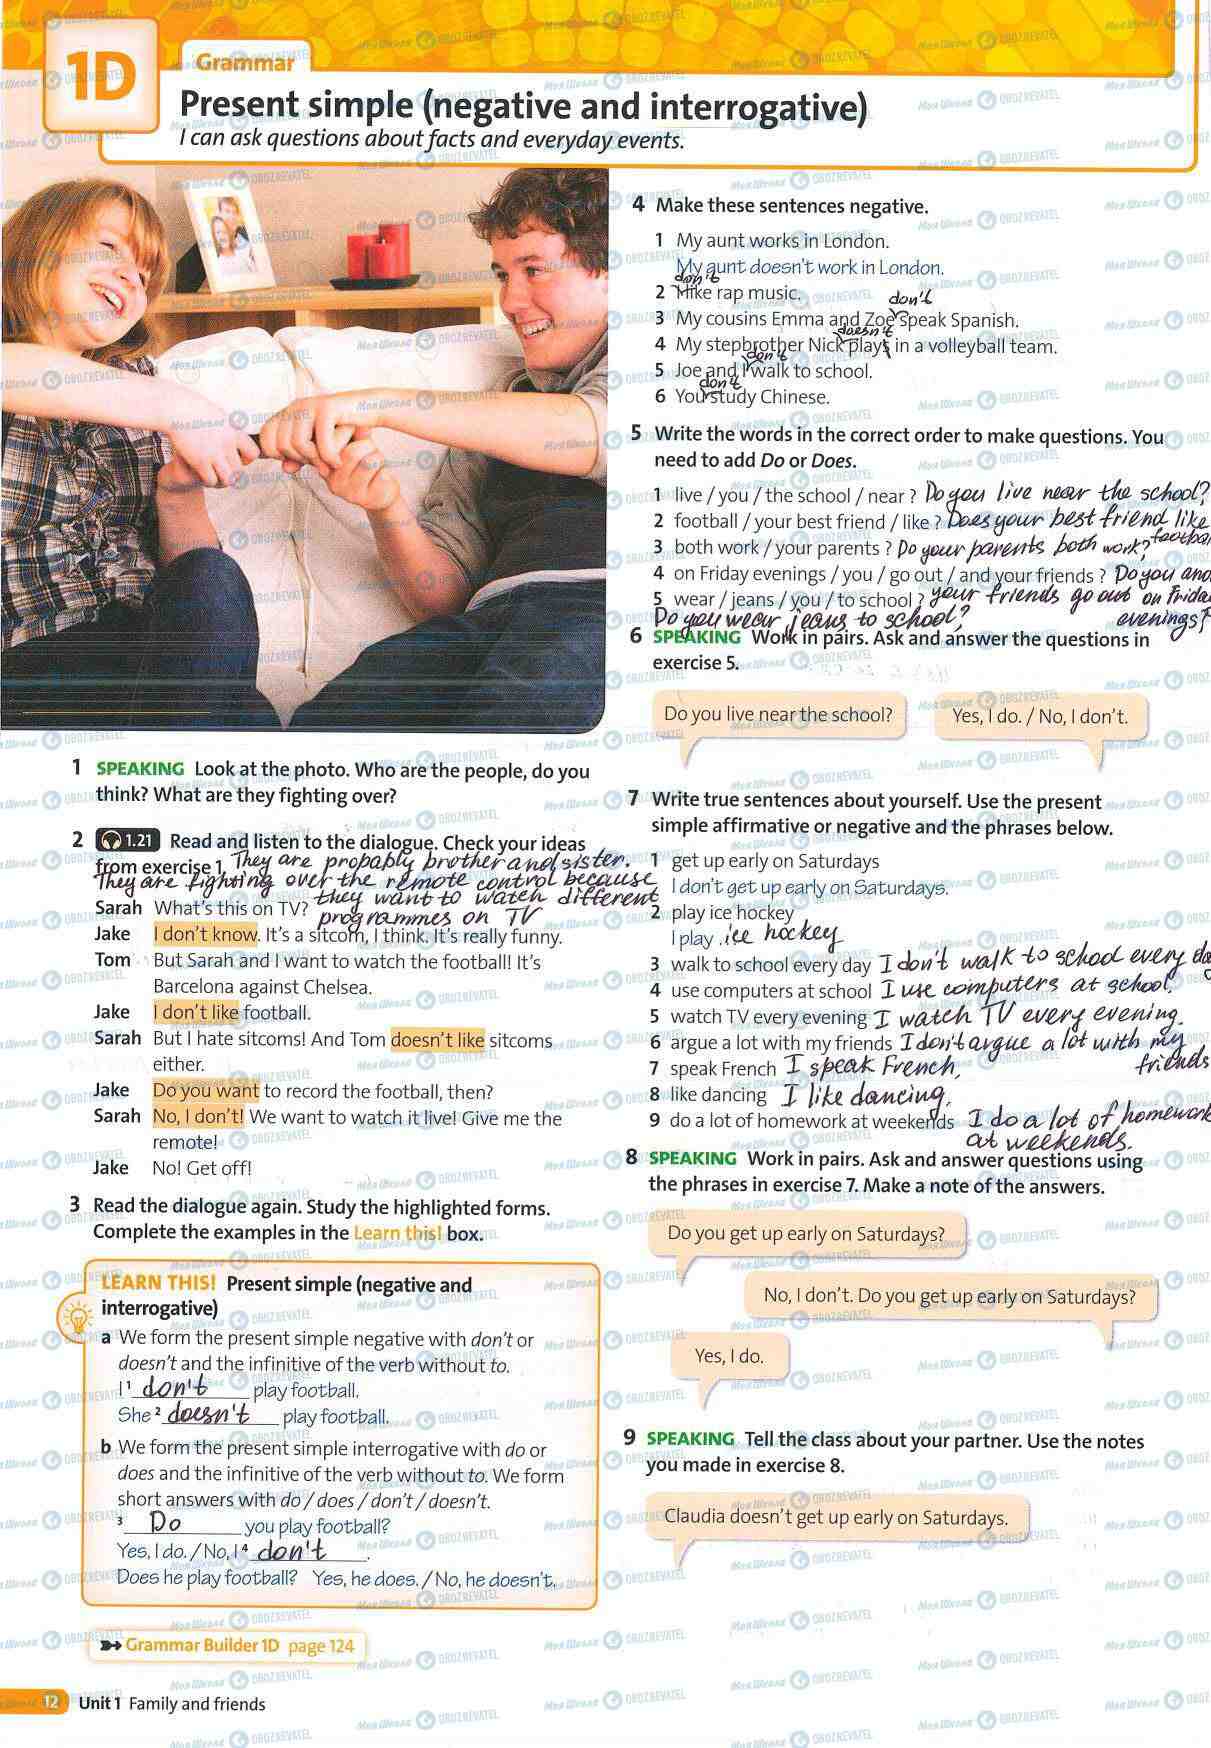 1D
Grammar
Present simple (negative and interrogative)
I can ask questions about facts and everyday events.
1 SPEAKING Look at the photo. Who are the people, do you
think? What are they fighting over?
2 1.21 Read and listen to the dialogue. Check your ideas
from exercise 1. They are probably brother and sister.
They are fighting over the remote control because
they want to watch different
programmes on TV
Sarah What's this on TV?
Jake I don't know. It's a sitcom, I think. It's really funny.
Tom But Sarah and I want to watch the football! It's
Barcelona against Chelsea.
Jake I don't like football.
Sarah But I hate sitcoms! And Tom doesn't like sitcoms
either.
Jake Do you want to record the football, then?
Sarah No, I don't! We want to watch it live! Give me the
remote!
Jake No! Get off!
3 Read the dialogue again. Study the highlighted forms.
Complete the examples in the Learn this! box.
LEARN THIS! Present simple (negative and
interrogative)
a We form the present simple negative with don't or
doesn't and the infinitive of the verb without to.
I 1 don't play football.
She 2 doesn't play football.
b We form the present simple interrogative with do or
does and the infinitive of the verb without to. We form
short answers with do / does / don't / doesn't.
3 Do you play football?
Yes, I do. / No, I 4 don't.
Does he play football? Yes, he does. / No, he doesn't.
Grammar Builder 1D page 124
12 Unit 1 Family and friends
4 Make these sentences negative.
1 My aunt works in London.
My aunt doesn't work in London.
don't
2 Mike rap music.
don't
3 My cousins Emma and Zoe speak Spanish.
doesn't
4 My stepbrother Nick plays in a volleyball team.
don't
5 Joe and I walk to school.
don't
6 You study Chinese.
5 Write the words in the correct order to make questions. You
need to add Do or Does.
1 live / you / the school / near ? Do you live near the school?
2 football / your best friend / like ? Does your best friend like
3 both work / your parents ? Do your parents both work?
4 on Friday evenings / you / go out / and your friends ? Do you and
5 wear / jeans / you / to school ? your friends go out on Friday
Do you wear jeans to school? evenings?
6 SPEAKING Work in pairs. Ask and answer the questions in
exercise 5.
Do you live near the school?
Yes, I do. / No, I don't.
7 Write true sentences about yourself. Use the present
simple affirmative or negative and the phrases below.
1 get up early on Saturdays
I don't get up early on Saturdays.
2 play ice hockey
I play ice hockey
3 walk to school every day I don't walk to school every day
4 use computers at school I use computers at school.
5 watch TV every evening I watch TV every evening.
6 argue a lot with my friends I don't argue a lot with my
friends
7 speak French I speak French.
8 like dancing I like dancing.
9 do a lot of homework at weekends I do a lot of homework
at weekends.
8 SPEAKING Work in pairs. Ask and answer questions using
the phrases in exercise 7. Make a note of the answers.
Do you get up early on Saturdays?
No, I don't. Do you get up early on Saturdays?
Yes, I do.
9 SPEAKING Tell the class about your partner. Use the notes
you made in exercise 8.
Claudia doesn't get up early on Saturdays.
Моя Школа OBOZREVATEL